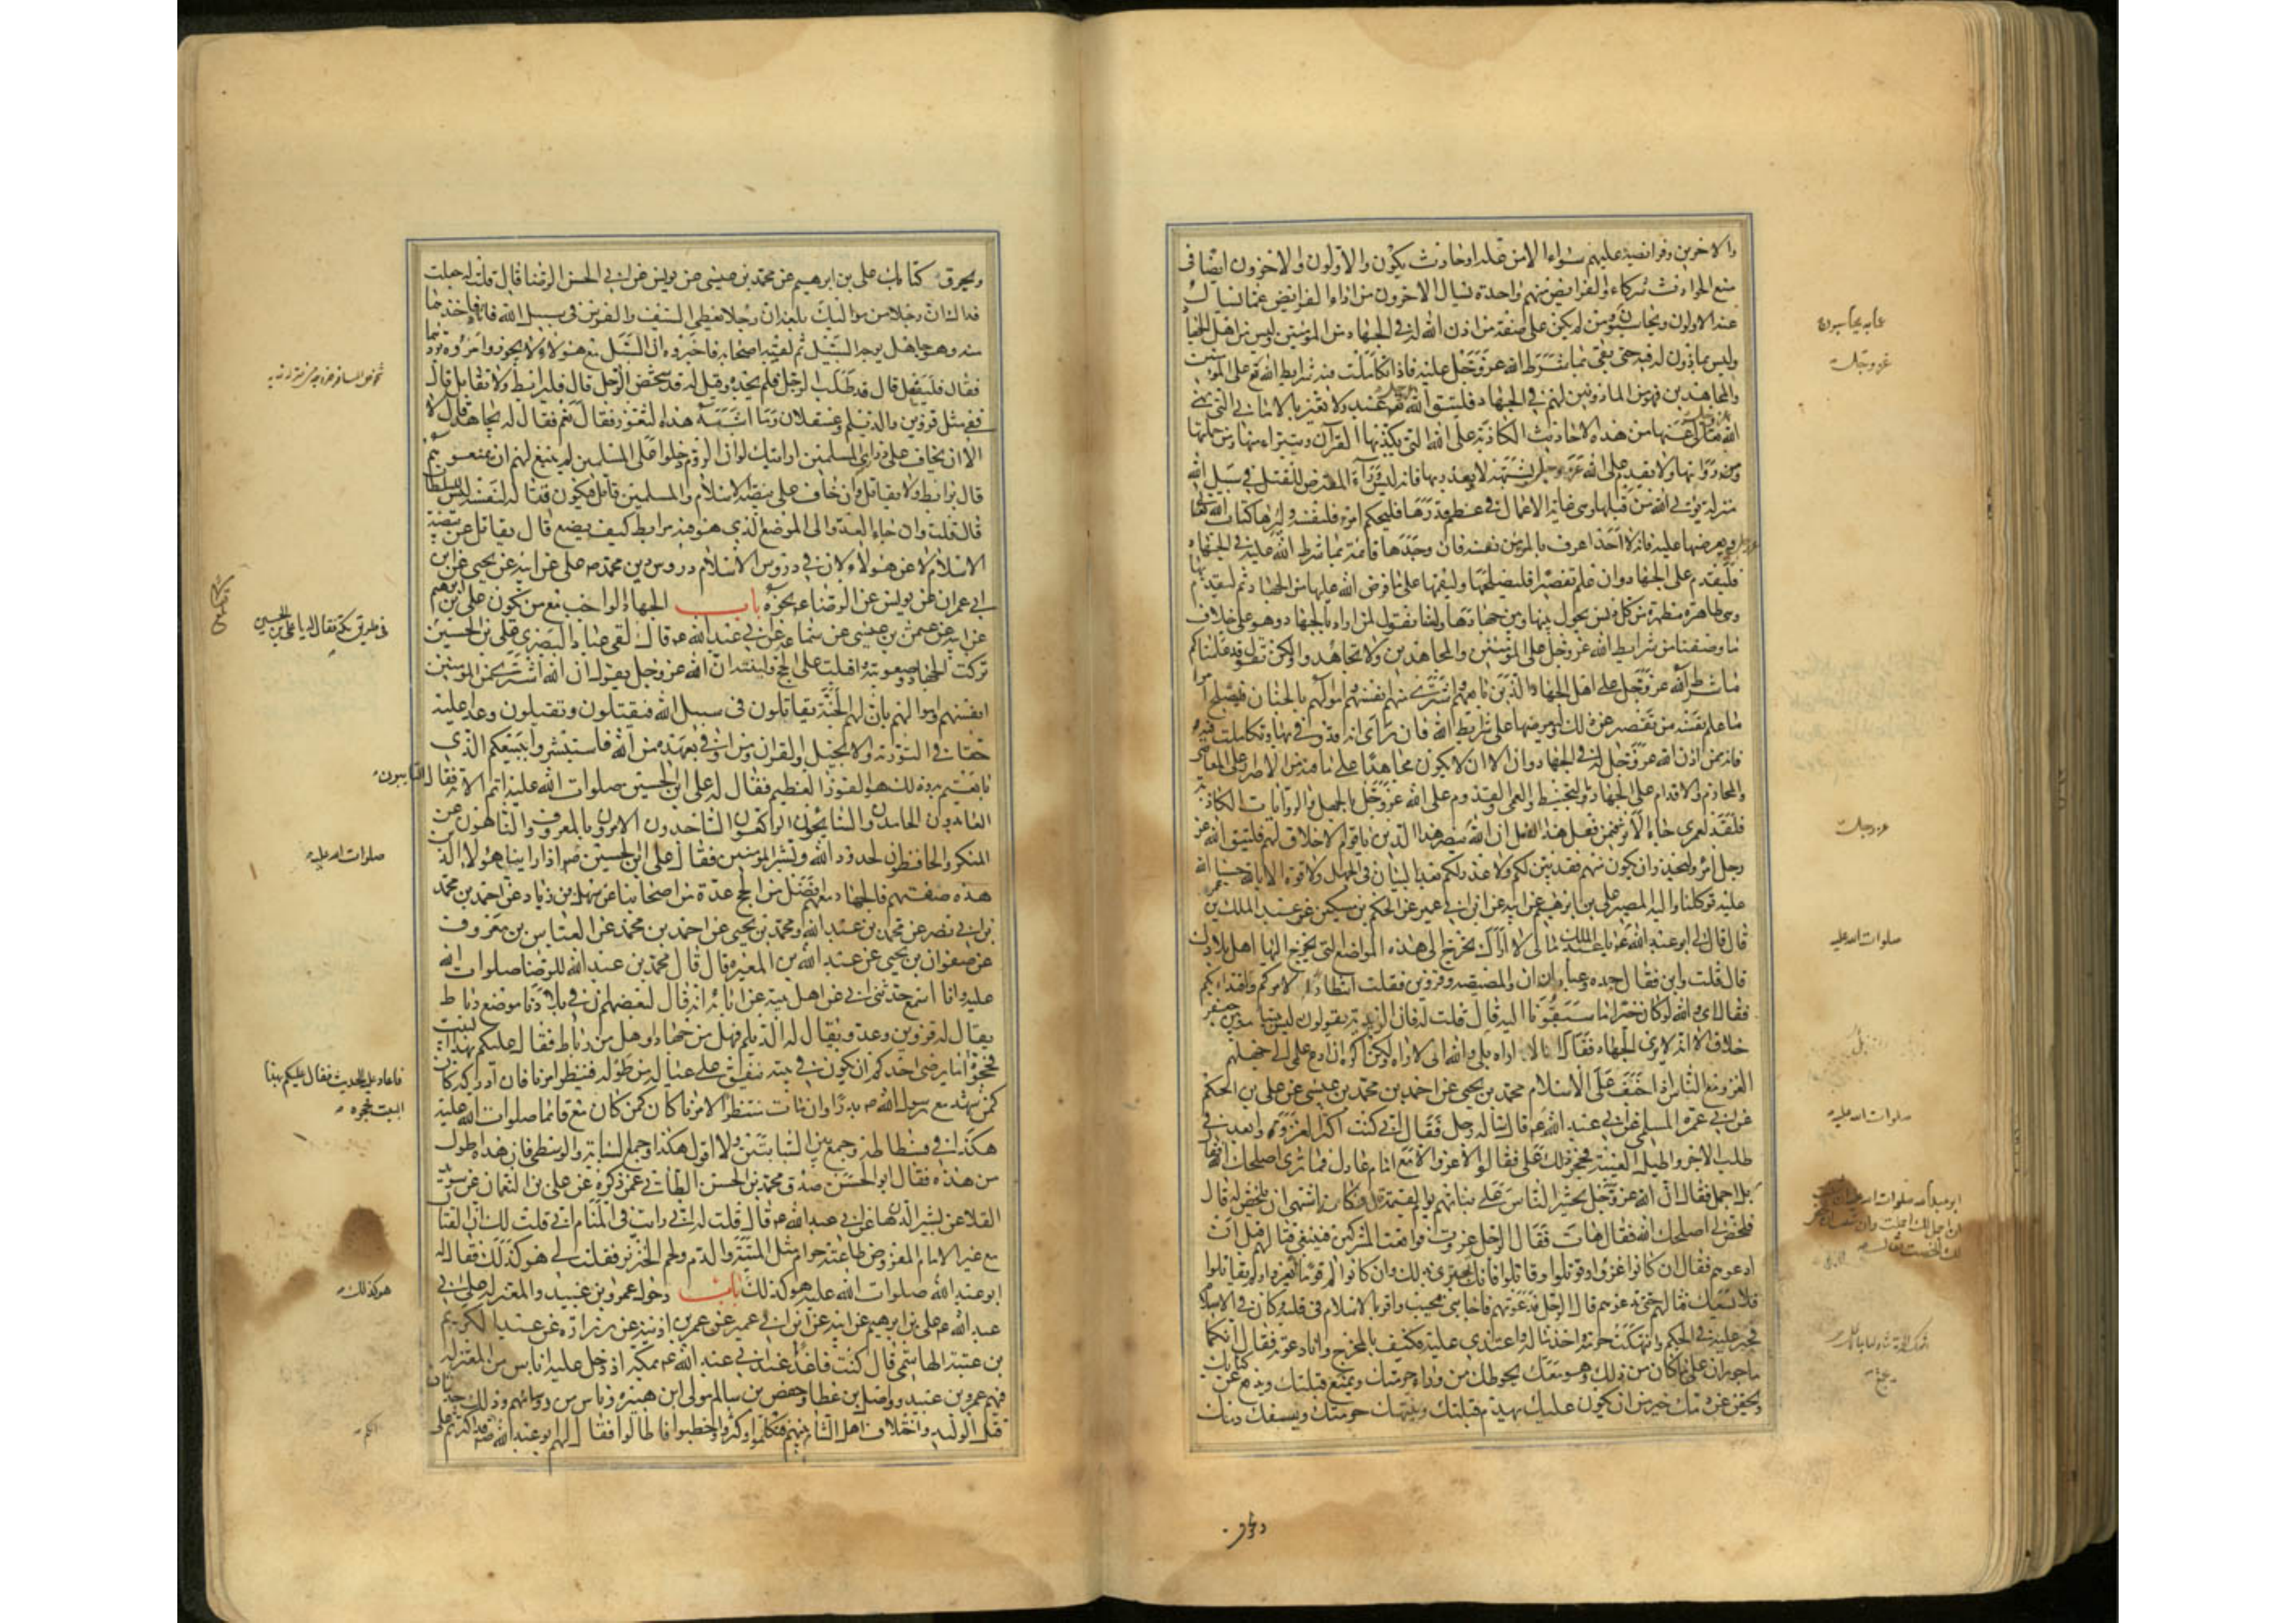 والاخرين وفرائضه عليهم سواء الا من علة او حادث يكون والاولون والاخرون ايضا في
منع الحوادث شركاء والفرائض عليهم واحدة يسال الاخرون من اداء الفرائض عما يسال
عنه الاولون ويحاسبون ومن لم يكن على صفة من اذن الله له في الجهاد من المؤمنين وليس من اهل الجهاد
وليس بماذون له فيه حتى يفي بما شرط الله عز وجل عليه فاذا تكاملت فيه شرايط الله على المؤمنين
والمجاهدين فهو من الماذونين لهم في الجهاد فليتق الله عبد ولا يغتر بالاماني التي نهى
الله عنها من هذه الاحاديث الكاذبة على الله التي يكذبها القرآن ويتبرا منها ومن حملتها
ومن رواتها ولا يقدم على الله عز وجل بشبهة لا يعذر بها فانه ليس وراء المتعرض للقتل في سبيل الله
منزلة يؤتى الله من قبلها وهي غاية الاعمال في عظم قدرها فليحكم امرؤ لنفسه وليرها كتاب الله
ويعرضها عليه فانه لا احد اعرف بالمرء من نفسه فان وجدها قائمة بما شرط الله عليه في الجهاد
فليقدم على الجهاد وان علم تقصيرا فليصلحها وليقمها على ما فرض الله عليها من الجهاد ثم ليقدم بها
وهي طاهرة مطهرة من كل دنس يحول بينها وبين جهادها ولسنا نقول لمن اراد الجهاد وهو على خلاف
ما وصفنا من شرايط الله عز وجل على المؤمنين والمجاهدين لا تجاهدوا ولكن نقول قد علمناكم
ما شرط الله عز وجل على اهل الجهاد الذين بايعهم واشترى منهم انفسهم واموالهم بالجنان فليصلح امرؤ
ما علم من نفسه من تقصير عن ذلك وليعرضها على شرايط الله فان راى انه قد وفى بها وتكاملت فيه
فانه ممن اذن الله عز وجل له في الجهاد وان ابى الا ان يكون مجاهدا على ما فيه من الاصرار على المعاصي
والمحارم والاقدام على الجهاد بالتخبيط والعمى والقدوم على الله عز وجل بالجهل والروايات الكاذبة
فلقد لعمري جاء الاثر فيمن فعل هذا الفعل ان الله ينصر هذا الدين باقوام لا خلاق لهم فليتق الله عز
وجل امرؤ وليحذر ان يكون منهم فقد بين لكم ولا عذر لكم بعد البيان في الجهل ولا قوة الا بالله حسبنا الله
عليه توكلنا واليه المصير علي بن ابراهيم عن ابيه عن ابن ابي عمير عن الحكم بن مسكين عن عبد الملك بن عمرو
قال قال لي ابو عبد الله ع يا عبد الملك مالي لا اراك تخرج الى هذه المواضع التي يخرج اليها اهل بلادك
قال قلت واين فقال جده وعبادان والمصيصه وقزوين فقلت انتظارا لامركم والاقتداء بكم
فقال اي والله لو كان خيرا ما سبقونا اليه قال قلت له فان الزيدية يقولون ليس بيننا وبين جعفر
خلاف الا انه لا يرى الجهاد فقال انا لا اراه بلى والله اني لاراه ولكن اكره ان ادع علمي الى جهلهم
الغزو مع الناس اذا خيف على الاسلام محمد بن يحيى عن احمد بن محمد بن عيسى عن علي بن الحكم
عن ابي عمرة السلمي عن ابي عبد الله ع قال ساله رجل فقال اني كنت اكثر الغزو وابعد في
طلب الاجر واطيل الغيبة فحجر ذلك علي فقالوا لا غزو الا مع امام عادل فما ترى اصلحك الله فقال
بل اجمل فقال ان الله عز وجل يحشر الناس على نياتهم يوم القيمة قال فكانه اشتهى ان يلخص له قال
فلخص لي اصلحك الله فقال هات فقال الرجل غزوت فواقعت المشركين فينبغي قتالهم قبل ان
ادعوهم فقال ان كانوا غزوا وقوتلوا وقاتلوا فانك تجتزي بذلك وان كانوا قوما لم يغزوا ولم يقاتلوا
فلا يسعك قتالهم حتى تدعوهم قال الرجل فدعوتهم فاجابني مجيب واقر بالاسلام في قلبه وكان في الاسلام
فجير عليه في الحكم وانتهكت حرمته واخذ ماله واعتدي عليه فكيف بالمخرج وانا دعوته فقال انكما
ماجوران على ما كان من ذلك وهو معك يحوطك من وراء حرمتك ويمنع قبلتك ويدفع عن كتابك
ويحقن دمك خير من ان يكون عليك يهدم قبلتك وينتهك حرمتك ويسفك دمك
ويحرق
عز وجل
عز وجل
صلوات الله عليه
صلوات الله عليه
ويحرق كتابك علي بن ابراهيم عن محمد بن عيسى عن يونس عن ابي الحسن الرضا قال قلت له جعلت
فداك ان رجلا من مواليك بلغه ان رجلا يعطي السيف والفرس في سبيل الله فاتاه فاخذهما
منه وهو جاهل بوجه السبيل ثم لقيه اصحابه فاخبروه ان السبيل مع هؤلاء لا يجوز وامروه بردهما
فقال فليفعل قال قد طلب الرجل فلم يجده وقيل له قد شخص الرجل قال فليرابط ولا يقاتل قال
ففي مثل قزوين والديلم وعسقلان وما اشبه هذه الثغور فقال نعم فقال له يجاهد قال لا
الا ان يخاف على ذراري المسلمين ارايتك لو ان الروم دخلوا على المسلمين لم ينبغ لهم ان يمنعوهم
قال يرابط ولا يقاتل وان خاف على بيضة الاسلام والمسلمين قاتل فيكون قتاله لنفسه ليس للسلطان
قال قلت وان جاء العدو الى الموضع الذي هو فيه مرابط كيف يصنع قال يقاتل عن بيضة
الاسلام لا عن هؤلاء لان في دروس الاسلام دروس دين محمد ص علي عن ابيه عن يحيى عن ابن
ابي عمران عن يونس عن الرضا ع نحوه باب الجهاد الواجب مع من يكون علي بن ابرهيم
عن ابيه عن عثمن بن عيسى عن سماعة عن ابي عبد الله ع قال لقي عباد البصري علي بن الحسين
تركت الجهاد وصعوبته واقبلت على الحج ولينته ان الله عز وجل يقول ان الله اشترى من المؤمنين
انفسهم واموالهم بان لهم الجنة يقاتلون في سبيل الله فيقتلون ويقتلون وعدا عليه
حقا في التورية والانجيل والقران ومن اوفى بعهده من الله فاستبشروا ببيعكم الذي
بايعتم به وذلك هو الفوز العظيم فقال له علي ابن الحسين صلوات الله عليه اتم الآية فقال التايبون
العابدون الحامدون السايحون الراكعون الساجدون الامرون بالمعروف والناهون عن
المنكر والحافظون لحدود الله وبشر المؤمنين فقال علي ابن الحسين ص اذا راينا هؤلاء الذين
هذه صفتهم فالجهاد معهم افضل من الحج عدة من اصحابنا عن سهل بن زياد عن احمد بن محمد
بن ابي نصر عن محمد بن عبد الله ومحمد بن يحيى عن احمد بن محمد عن العباس بن معروف
عن صفوان بن يحيى عن عبد الله بن المغيره قال قال محمد بن عبد الله للرضا صلوات الله
عليه وانا اسمع حدثني ابي عن اهل بيته عن ابائه انه قال لبعضهم ان في بلادنا موضع رباط
يقال له قزوين وعدوا يقال له الديلم فهل من جهاد او هل من رباط فقال عليكم بهذا البيت
فحجوه اما يرضى احدكم ان يكون في بيته ينفق على عياله من طوله فينتظر امرنا فان ادركه كان
كمن شهد مع رسول الله ص بدرا وان مات منتظرا لامرنا كان كمن كان مع قائمنا صلوات الله عليه
هكذا في فسطاطه وجمع بين السبابتين ولا اقول هكذا وجمع السبابة والوسطى فان هذه اطول
من هذه فقال ابو الحسن صدق محمد بن الحسن الطائي عمن ذكره عن علي بن النعمان عن سويد
القلا عن بشير الدهان عن ابي عبد الله ع قال قلت له اني رايت في المنام اني قلت لك ان القتال
مع غير الامام المفروض طاعته حرام مثل الميتة والدم ولحم الخنزير فقلت لي هو كذلك فقال
ابو عبد الله صلوات الله عليه هو كذلك باب دخول عمرو بن عبيد والمعتزله على ابي
عبد الله ع علي بن ابرهيم عن ابيه عن ابن ابي عمير عن عمر بن اذينه عن زرارة عن عبد الكريم
بن عتبة الهاشمي قال كنت قاعدا عند ابي عبد الله ع بمكة اذ دخل عليه اناس من المعتزله
فيهم عمرو بن عبيد وواصل بن عطا وحفص بن سالم مولى ابن هبيره وناس من رؤسائهم وذلك حدثان
قتل الوليد واختلاف اهل الشام بينهم فتكلموا واكثروا وخطبوا فاطالوا فقال لهم ابو عبد الله ص قد اكثرتم علي
في طريق مكة فقال له يا علي بن الحسين
صلوات الله عليه
فاعاد عليه الحديث فقال عليكم بهذا
البيت فحجوه
هو كذلك